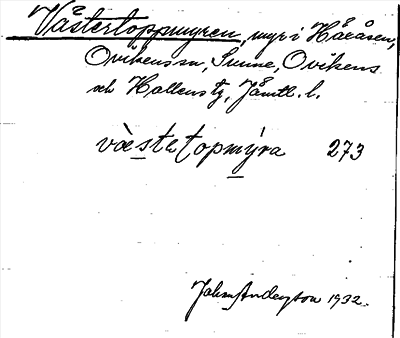 Västertoppmyren, myr i Håråsen,
Ovikens sn, Sunne, Ovikens
och Hallens tg, Jämtl. l.
væstetopmýra 273
John Anderson 1932.